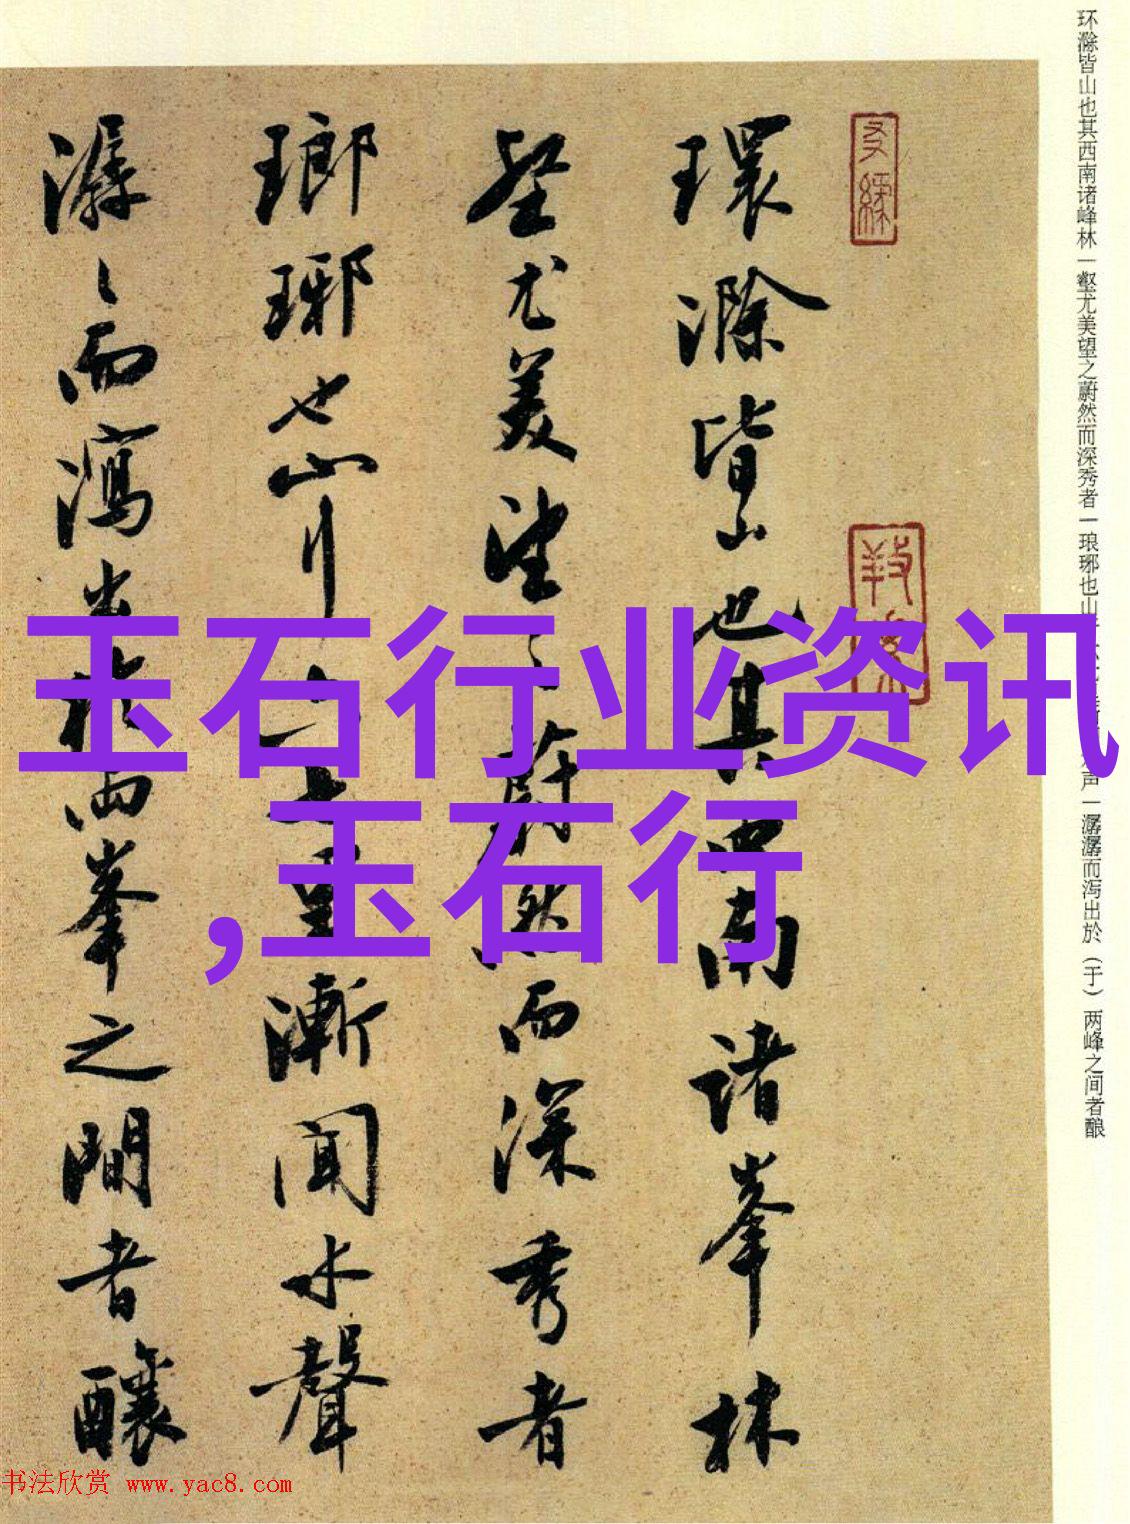 环滁皆山也其西南诸峰林一壑尤美望之蔚然而深秀者一琅琊也山
声一潺潺而泻出於（于）两峰之间者酿
環滁皆山也其西南諸峯林
壑尤美望之蔚然而深秀者
瑯琊也山行六七里漸聞水聲
潺〻而瀉出於兩峯之間者釀
玉石行业资讯
,玉石行
书法欣赏 www.yac8.com